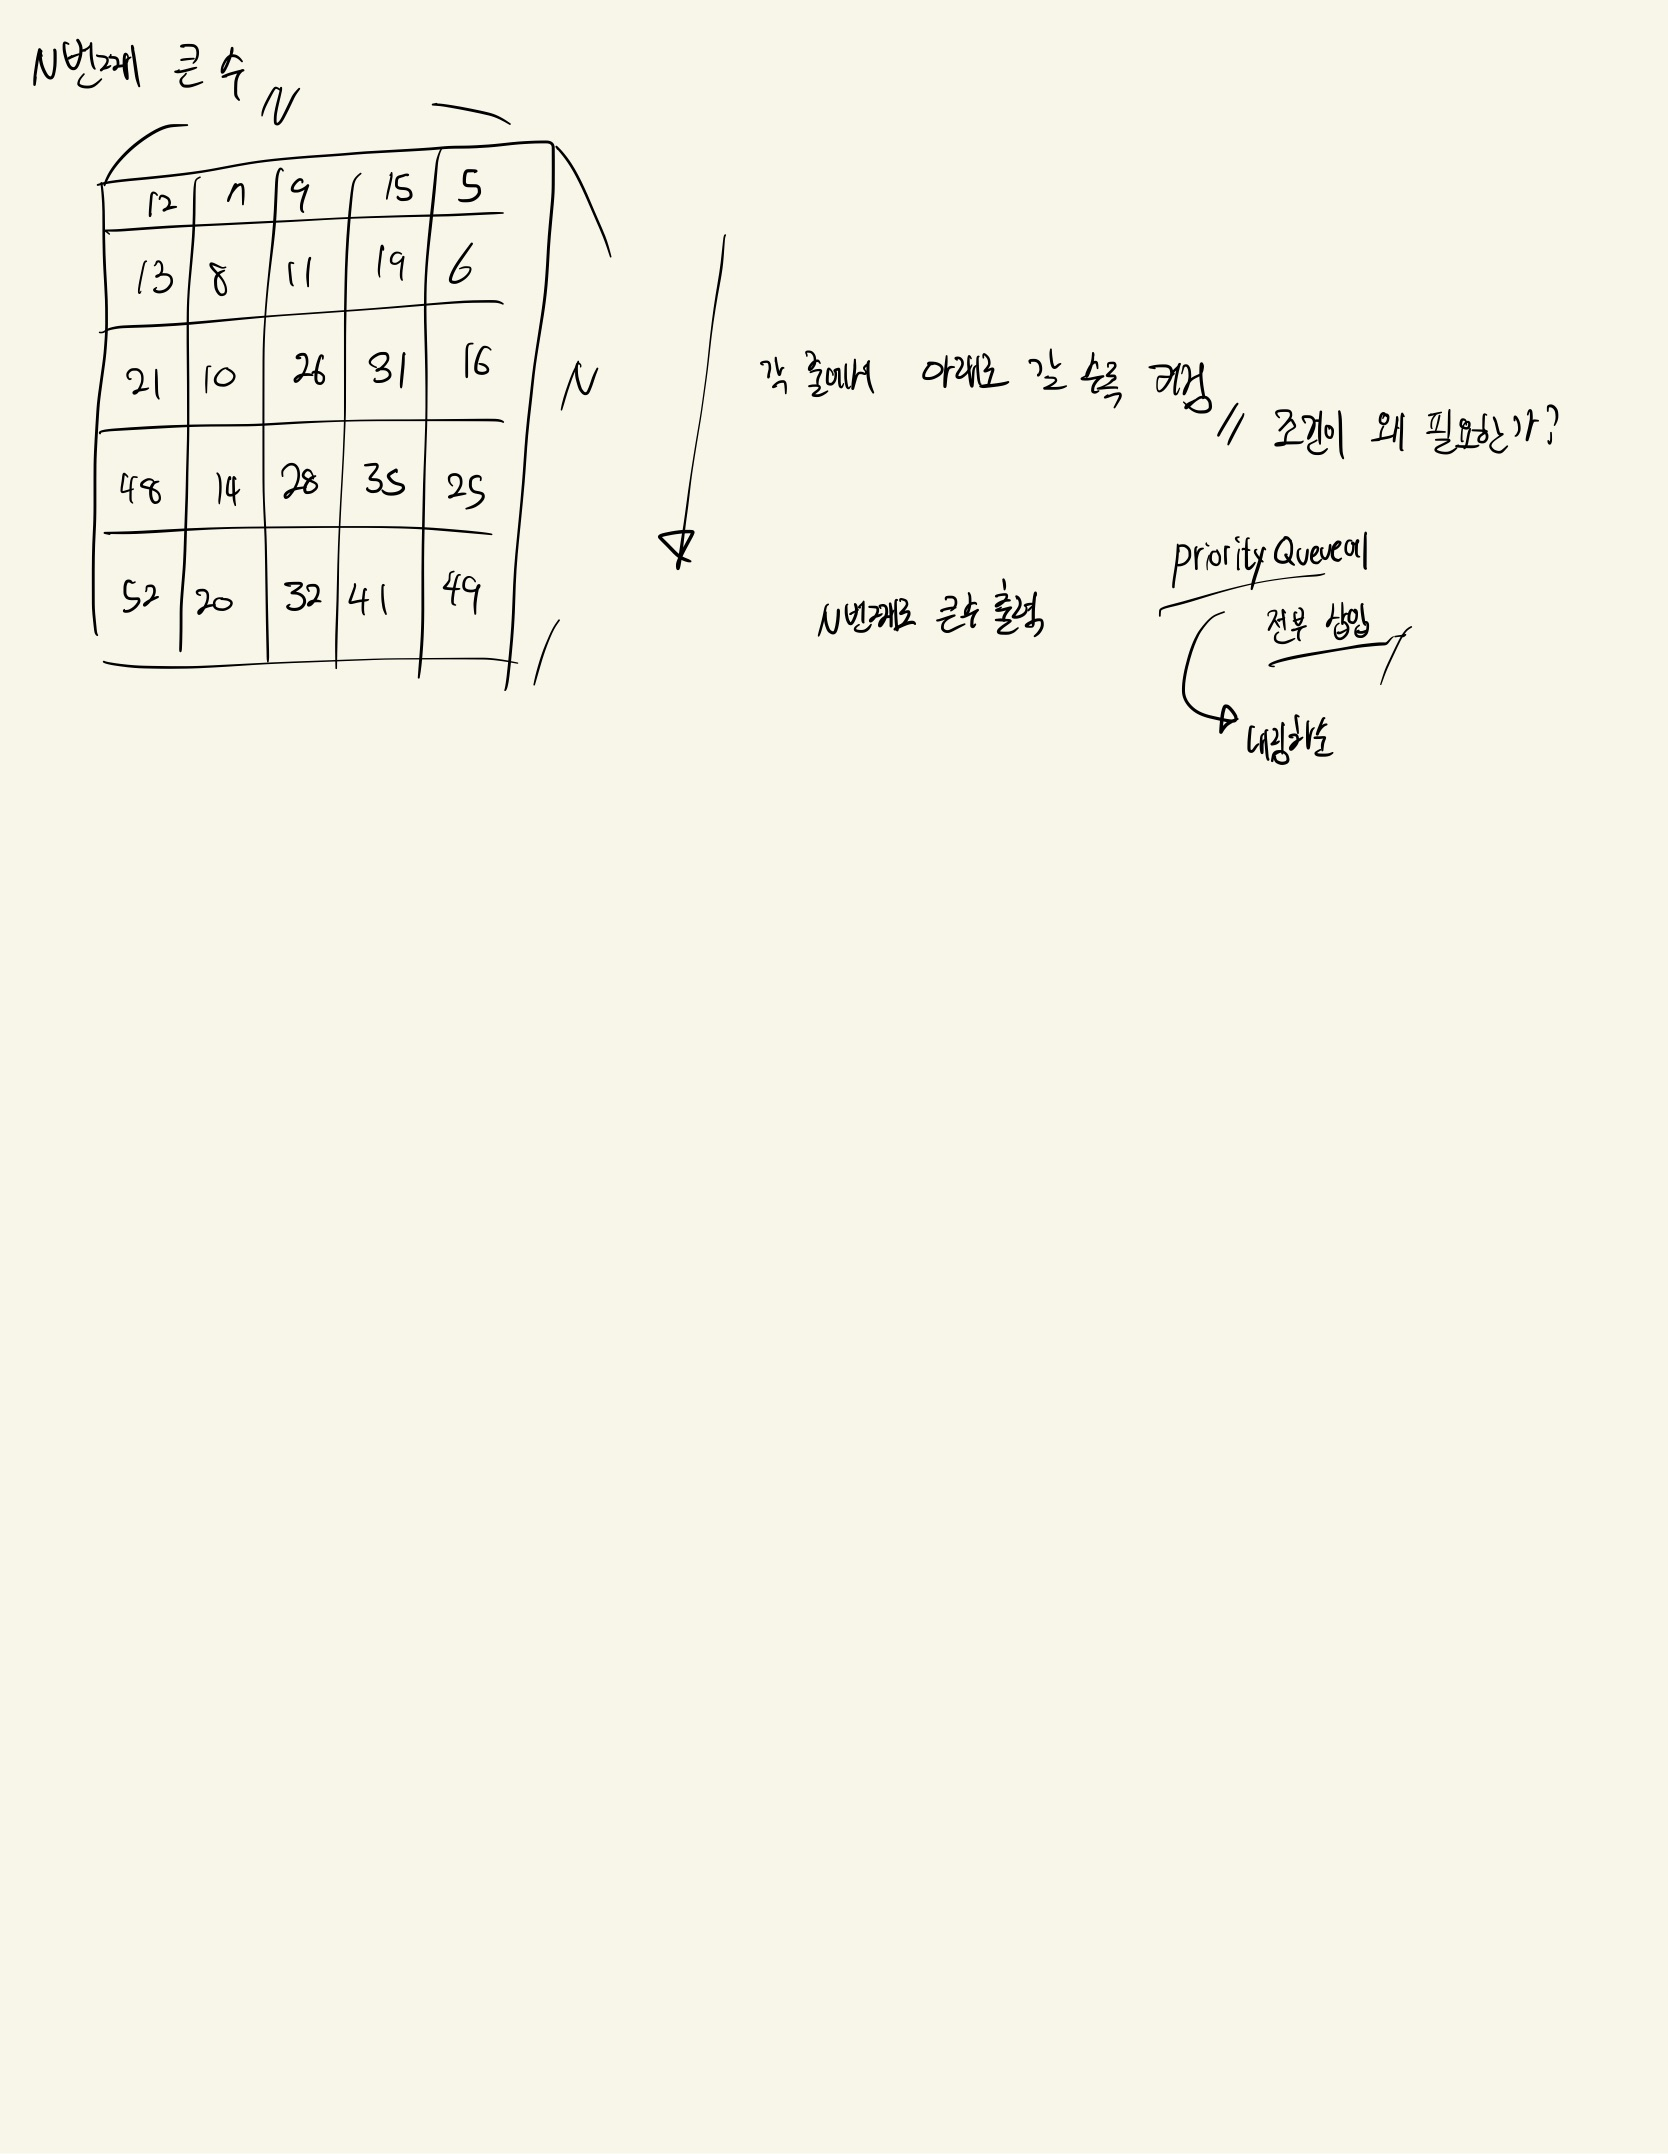 N번째 큰 수
N
12 7 9 15 5
13 8 11 19 6
21 10 26 31 16
N
48 14 28 35 25
52 20 32 41 49
각 줄에서 아래로 갈 수록 커짐
// 조건이 왜 필요한가?
N번째로 큰 수 출력
Priority Queue에
전부 삽입
내림차순